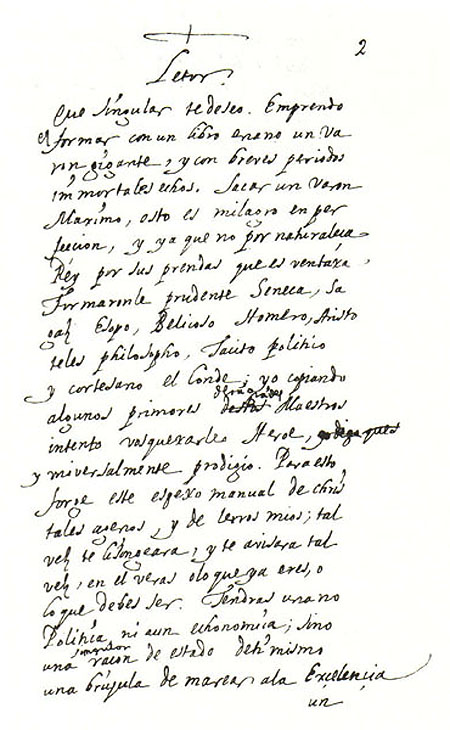 2
Letor.
Que singular te deseo. Emprendo
el formar con un libro enano un Va
ron gigante, y con breves periodos
immortales echos. Sacar un varon
Maximo, esto es milagro en per
feccion, y ya que no por naturaleça
Rey por sus prendas que es ventaxa.
Formaronle prudente Seneca, Sa
gaz Esopo, Belicoso Homero, Aristo
teles philosopho, Tacito politico
y cortesano el Conde; yo copiando
algunos primores Maestros
intento vosquexarle Heroe,
y universalmente prodigio. Para esto
forge este espexo manual de chris
tales agenos, y de ierros mios; tal
vez te lisongeara, y te avisara tal
vez, en el veras o lo que ya eres, o
lo que debes ser. Tendras una no
Politica, ni aun echonomica; sino
una razon de estado de ti mismo
una brujula de marear a la Excelencia
un